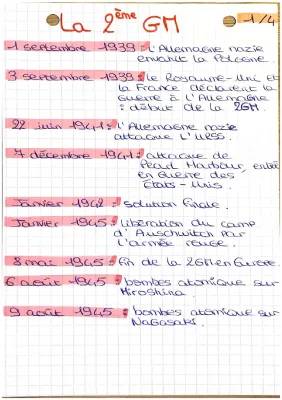 La 2ème GM
1/4
1 septembre 1939 : l'Allemagne nazie
envahit la Pologne.
3 septembre 1939 : le Royaume-Uni et
la France déclarent la
guerre à l'Allemagne
: début de la 2GM.
22 juin 1941 : l'Allemagne nazie
attaque l'URSS.
7 décembre 1941 : attaque de
Pearl Harbour, entrée
en Guerre des
États-Unis.
Janvier 1942 : solution finale.
Janvier 1945 : libération du camp
d'Auschwitch par
l'armée rouge.
8 mai 1945 : fin de la 2GM en Europe.
6 août 1945 : bombes atomique sur
Hiroshima.
9 août 1945 : bombes atomique sur
Nagasaki.